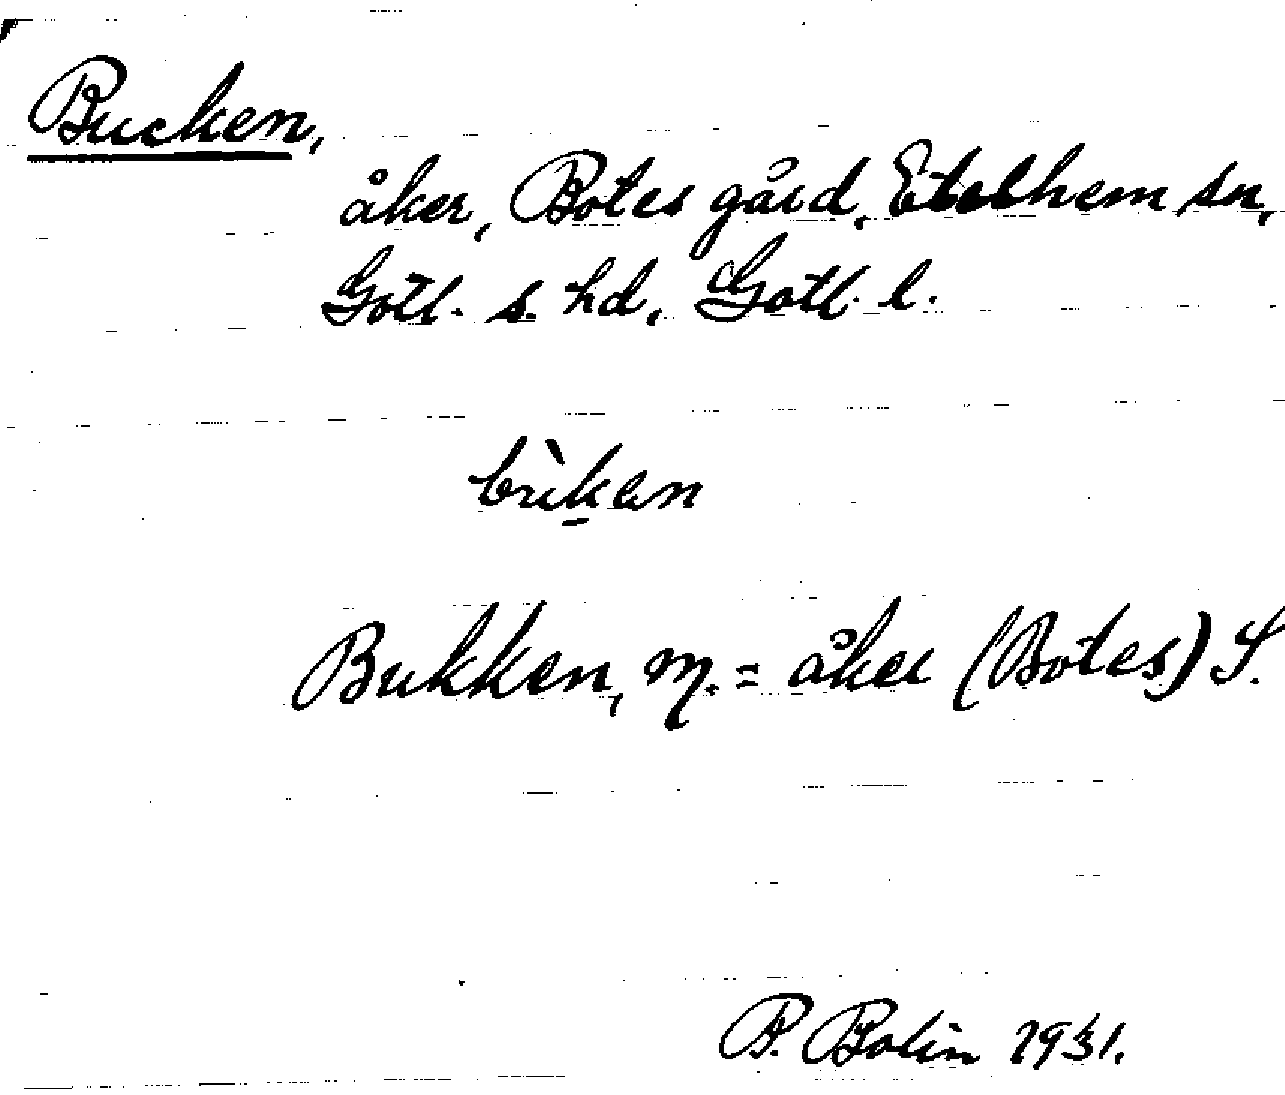 Bucken,
åker, Botes gård, Etelhem sn,
Gotl. s. hd, Gotl. l.
bùk̠en
Bukken, m. = åker (Botes) S.
P. Bolin 1931.